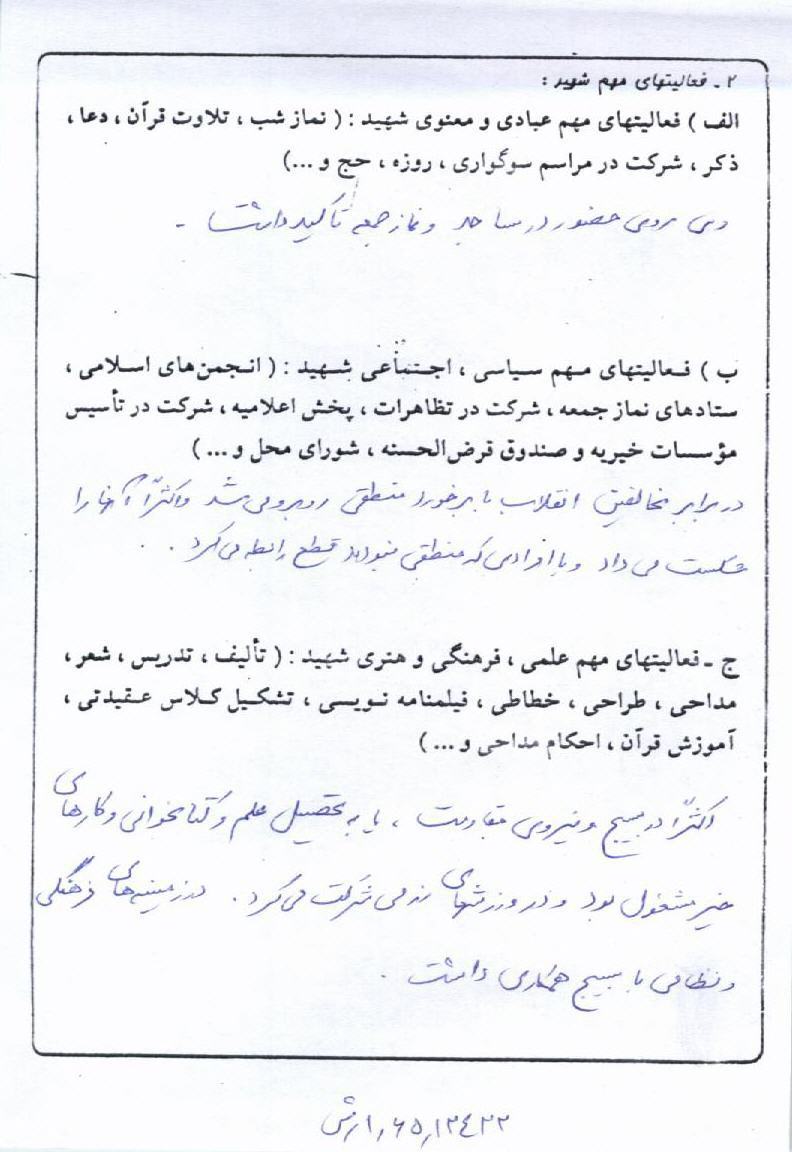 ۲ - فعالیتهای مهم شهید :
الف ) فعالیتهای مهم عبادی و معنوی شهید : ( نماز شب ، تلاوت قرآن ، دعا ،
ذکر ، شرکت در مراسم سوگواری ، روزه ، حج و ...)
وی روی حضور در مساجد و نماز جمعه تأکید داشت -
ب ) فعالیتهای مهم سیاسی ، اجتماعی شهید : ( انجمن‌های اسلامی ،
ستادهای نماز جمعه ، شرکت در تظاهرات ، پخش اعلامیه ، شرکت در تأسیس
مؤسسات خیریه و صندوق قرض‌الحسنه ، شورای محل و ... )
در برابر مخالفین انقلاب با برخورد منطقی روبرو می شد و اکثراً آنها را
شکست می داد و با افرادی که منطقی نبودند قطع رابطه می کرد .
ج - فعالیتهای مهم علمی ، فرهنگی و هنری شهید : ( تألیف ، تدریس ، شعر ،
مداحی ، طراحی ، خطاطی ، فیلمنامه نویسی ، تشکیل کلاس عقیدتی ،
آموزش قرآن ، احکام مداحی و ... )
اکثراً در بسیج و نیروی مقاومت ، یا به تحصیل علم و کتابخوانی و کارهای
خیر مشغول بود و در ورزشهای رزمی شرکت می کرد . در زمینه های فرهنگی
و نظامی با بسیج همکاری داشت .
۱٫۶۵٫۱۲۴۲۲ ارتش